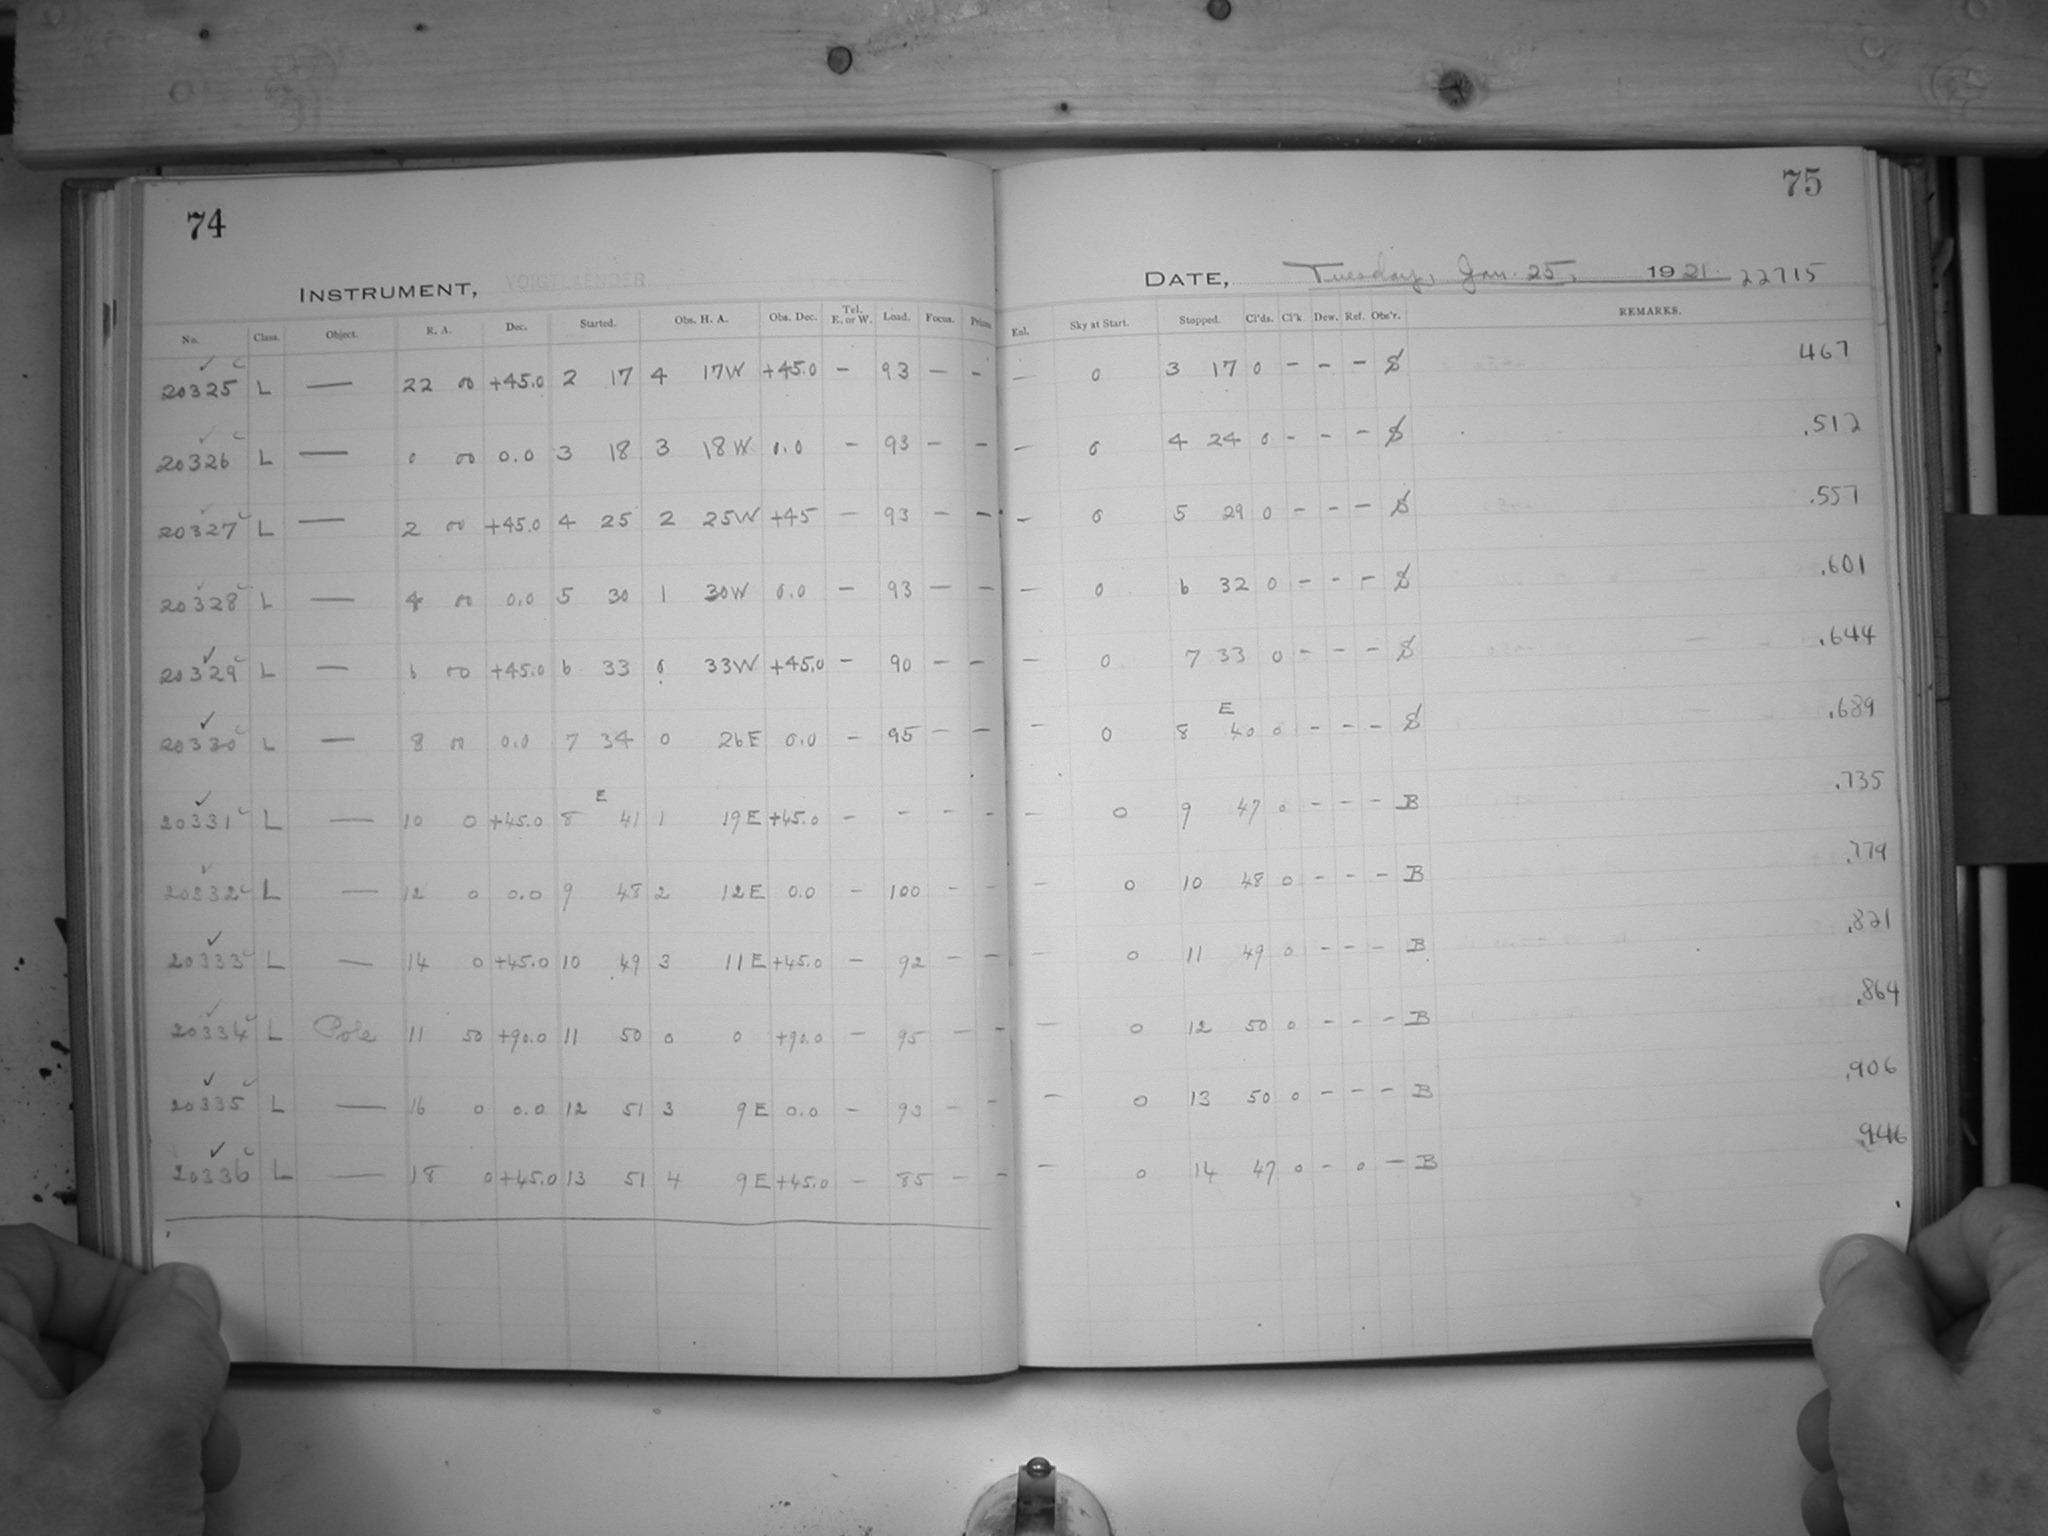 74
75
INSTRUMENT, VOIGTLAENDER
DATE, Tuesday, Jan. 25, 1921. 22715
No. Class. Object. R. A. Dec. Started. Obs. H. A. Obs. Dec. Tel. E. or W. Load. Focus. Prism Enl. Sky at Start. Stopped. Cl'ds. Cl'k Dew. Ref. Obs'r. REMARKS.
20325 L — 22 00 +45.0 2 17 4 17W +45.0 — 93 — — — 0 3 17 0 — — — S 467
20326 L — 0 00 0.0 3 18 3 18W 0.0 — 93 — — — 0 4 24 0 — — — S .512
20327 L — 2 00 +45.0 4 25 2 25W +45 — 93 — — — 0 5 29 0 — — — S .557
20328 L — 4 00 0.0 5 30 1 30W 0.0 — 93 — — — 0 6 32 0 — — — S .601
20329 L — 6 00 +45.0 6 33 0 33W +45.0 — 90 — — — 0 7 33 0 — — — S .644
20330 L — 8 00 0.0 7 34 0 26E 0.0 — 95 — — — 0 8 E 40 0 — — — S .689
20331 L — 10 0 +45.0 8 E 41 1 19E +45.0 — — — — — 0 9 47 0 — — — B .735
20332 L — 12 0 0.0 9 48 2 12E 0.0 — 100 — — — 0 10 48 0 — — — B .779
20333 L — 14 0 +45.0 10 49 3 11E +45.0 — 92 — — — 0 11 49 0 — — — B .821
20334 L Pole 11 50 +90.0 11 50 0 0 +90.0 — 95 — — — 0 12 50 0 — — — B .864
20335 L — 16 0 0.0 12 51 3 9E 0.0 — 93 — — — 0 13 50 0 — — — B .906
20336 L — 18 0 +45.0 13 51 4 9E +45.0 — 85 — — — 0 14 47 0 — 0 — B .946